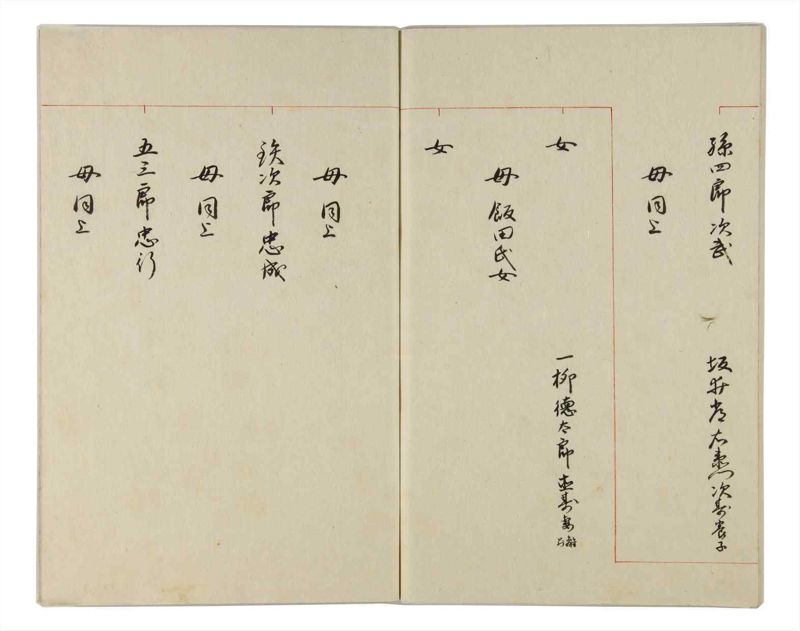 孫四郎次武
坂井
次寿養子
母同上
女
一柳徳太郎直寿妻
母飯田氏女
女
母同上
鉄次郎忠成
母同上
五三郎忠行
母同上